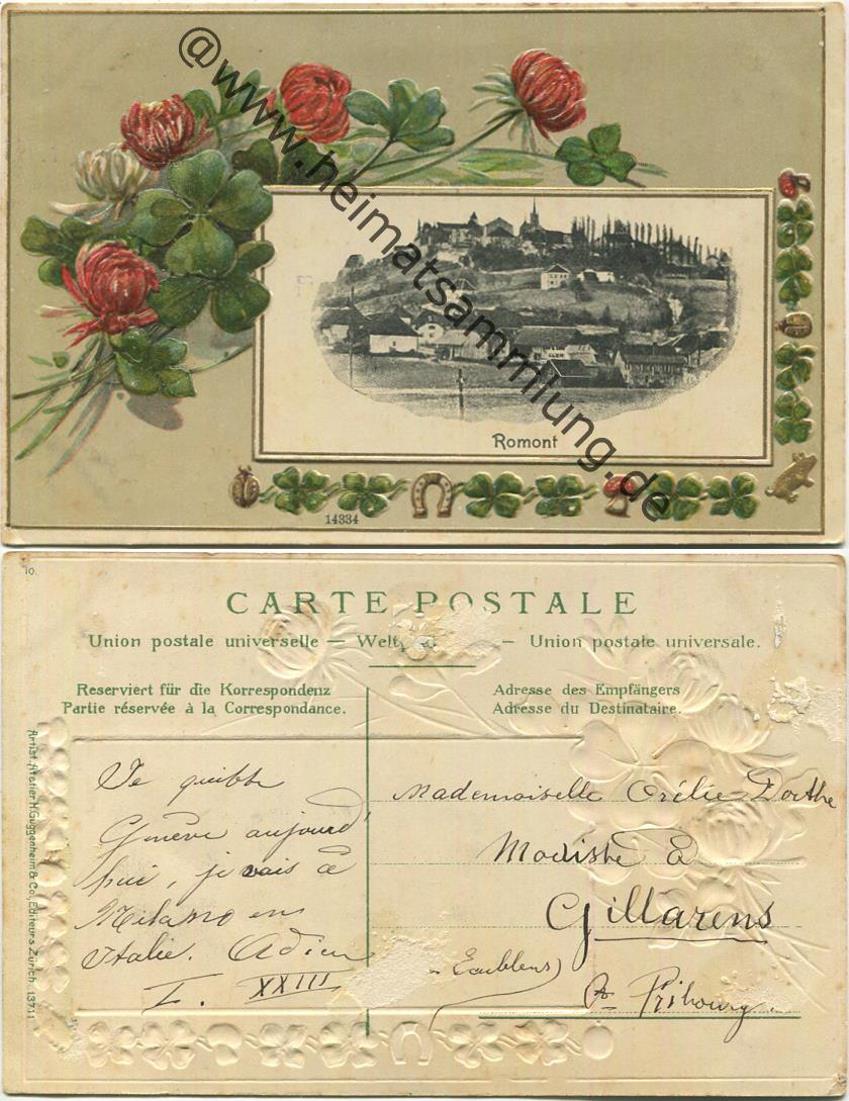 @www.heimatsammlung.de
Romont
14334
10.
CARTE POSTALE
Union postale universelle — — Union postale universale.
Reserviert für die Korrespondenz
Partie réservée à la Correspondance.
Adresse des Empfängers
Adresse du Destinataire.
Artist. Atelier H. Guggenheim & Co., Editeurs Zürich. 13711
Je quitte
Genève aujourd'
hui, je vais à
Milano en
Italie. Adieu
I. XXIII
Mademoiselle Orélie Dorthe
Modiste à
Gillarens
Ct. Fribourg